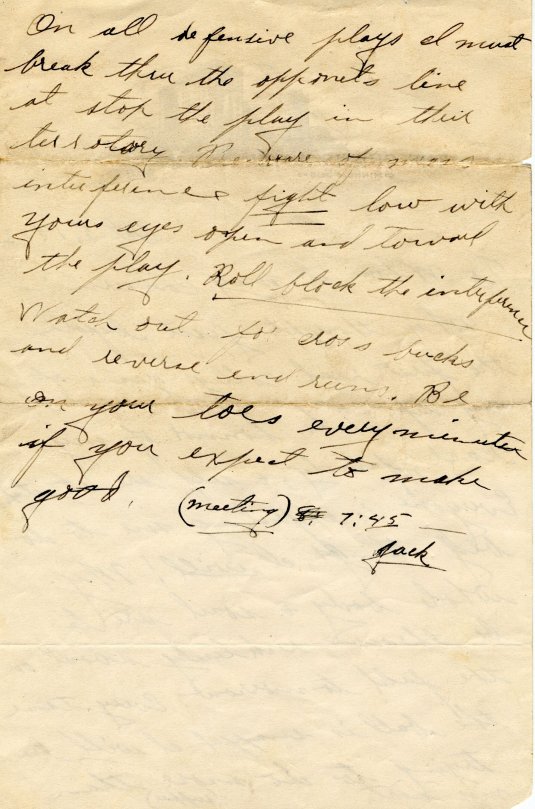 On all defensive plays I must
break thru the opponets line
at stop the play in their
terrotory. Beware of mass
interference fight low with
yours eyes open and toward
the play. Roll block the interference
Watch out for cross bucks
and reverse end runs. Be
on your toes every minute
if you expect to make
good.
(meeting) 7:45
Jack